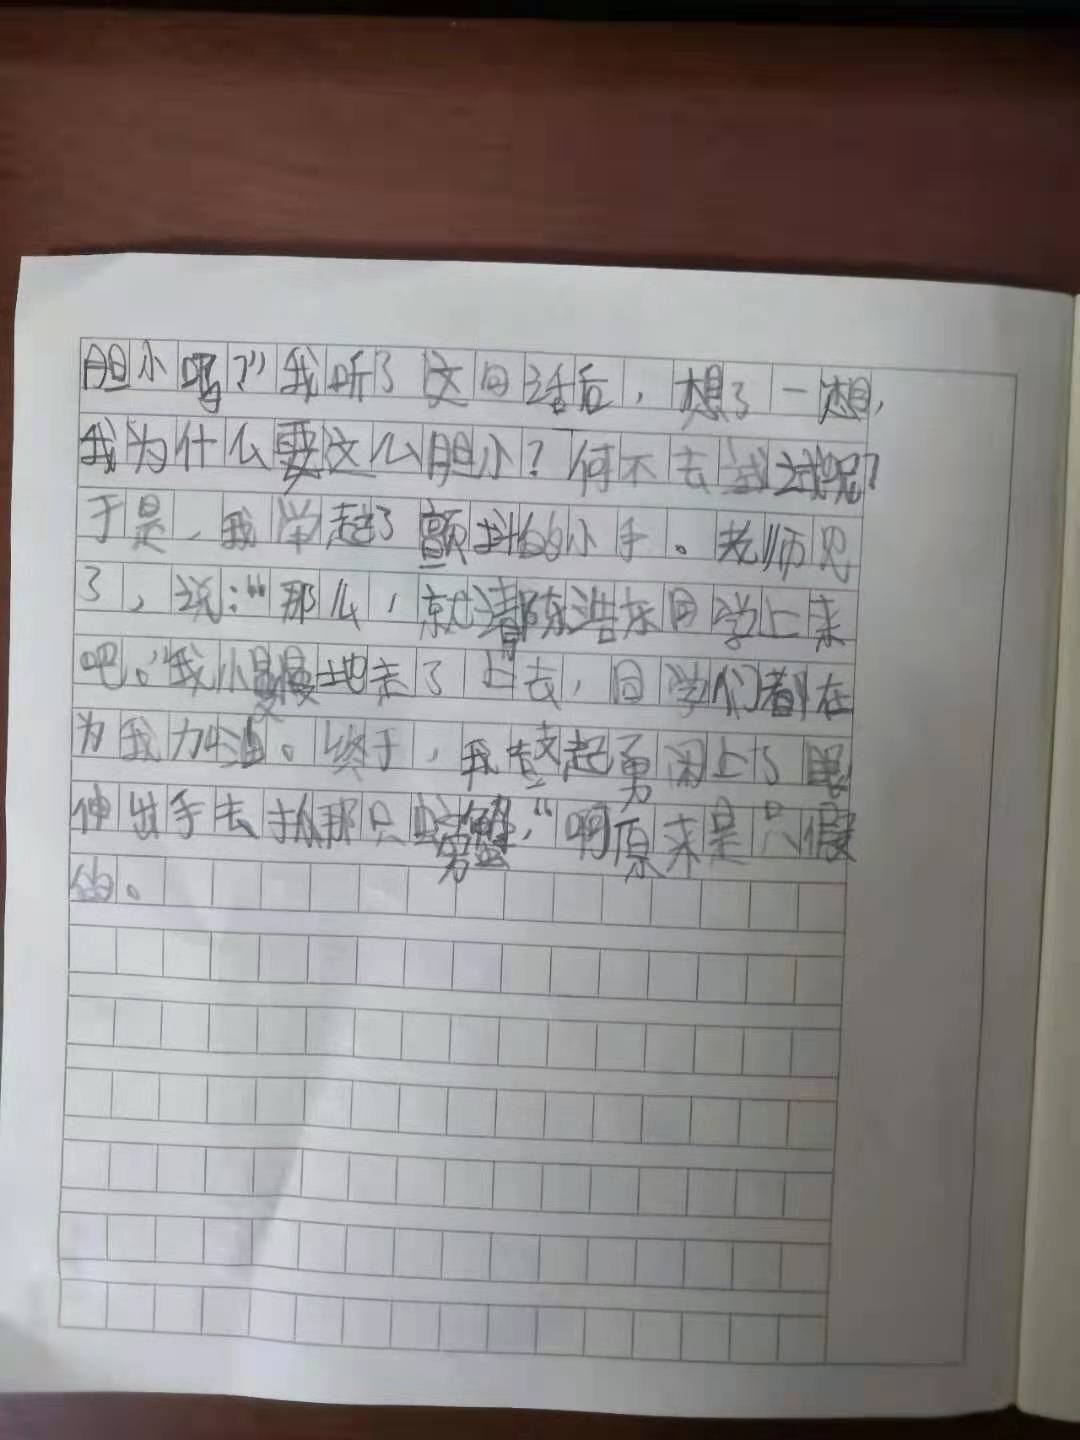 胆小吗？”我听了这句话后，想了一想，
我为什么要这么胆小？何不去试试呢？
于是，我举起了颤抖的小手。老师见
了，说：“那么，就请陈浩东同学上来
吧。”我小慢慢地走了上去，同学们都在
为我加油。终于，我鼓起勇闭上了眼
伸出手去抓那只螃蟹，“啊原来是只假
的。